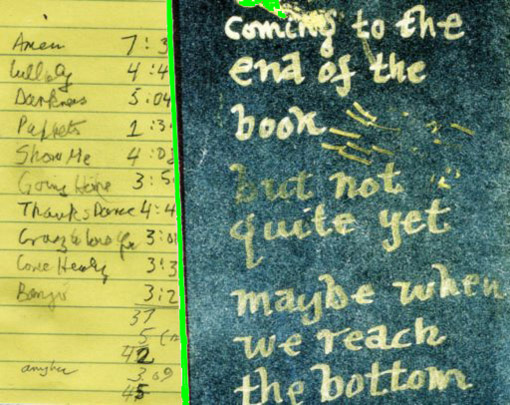 Amen 7:3
Lullaby 4:4
Darkness 5:04
Puppets 1:3
Show Me 4:03
Going Home 3:5
Thanks Dance 4:4
Crazy to love 3:0
Come Healy 3:3
Banjo 3:2
37
5
42
anyhow 3 09
45
coming to the
end of the
book
but not
quite yet
maybe when
we reach
the bottom